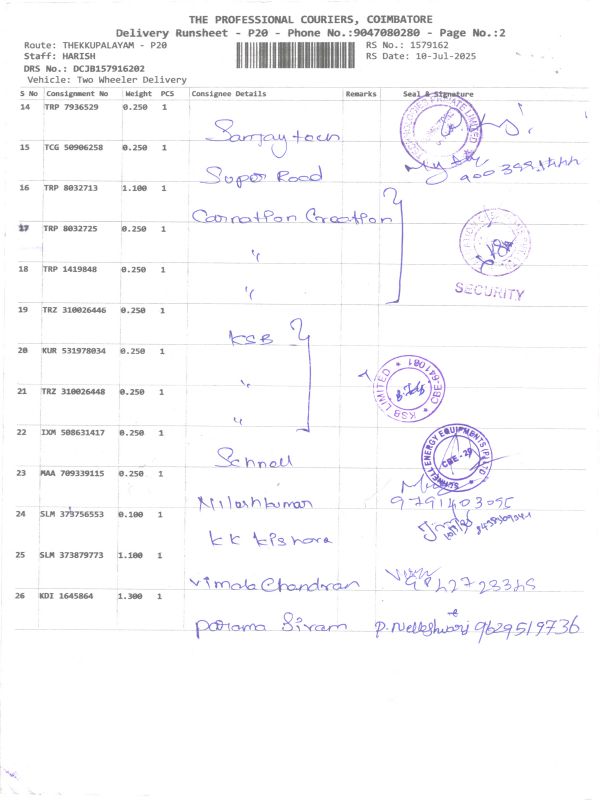 THE PROFESSIONAL COURIERS, COIMBATORE
Delivery Runsheet - P20 - Phone No.:9047080280 - Page No.:2
Route: THEKKUPALAYAM - P20 RS No.: 1579162
Staff: HARISH RS Date: 10-Jul-2025
DRS No.: DCJB157916202
Vehicle: Two Wheeler Delivery
S No Consignment No Weight PCS Consignee Details Remarks Seal & Signature
14 TRP 7936529 0.250 1
Sanjay tech
15 TCG 50906258 0.250 1
Super Road
16 TRP 8032713 1.100 1
Carnation Creation
17 TRP 8032725 0.250 1
"
18 TRP 1419848 0.250 1
"
SECURITY
19 TRZ 310026446 0.250 1
KSB
20 KUR 531978034 0.250 1
"
KSB LIMITED * CBE-641081 *
21 TRZ 310026448 0.250 1
"
22 IXM 508631417 0.250 1
Schnell
SCHNELL ENERGY EQUIPMENTS (P) LTD
CBE - 29
23 MAA 709339115 0.250 1
Nilashkumar 9791403095
24 SLM 373756553 0.100 1
KK Kishora
25 SLM 373879773 1.100 1
Vimala Chandran 9842723345
26 KDI 1645864 1.300 1
Parama Sivam 9629519736